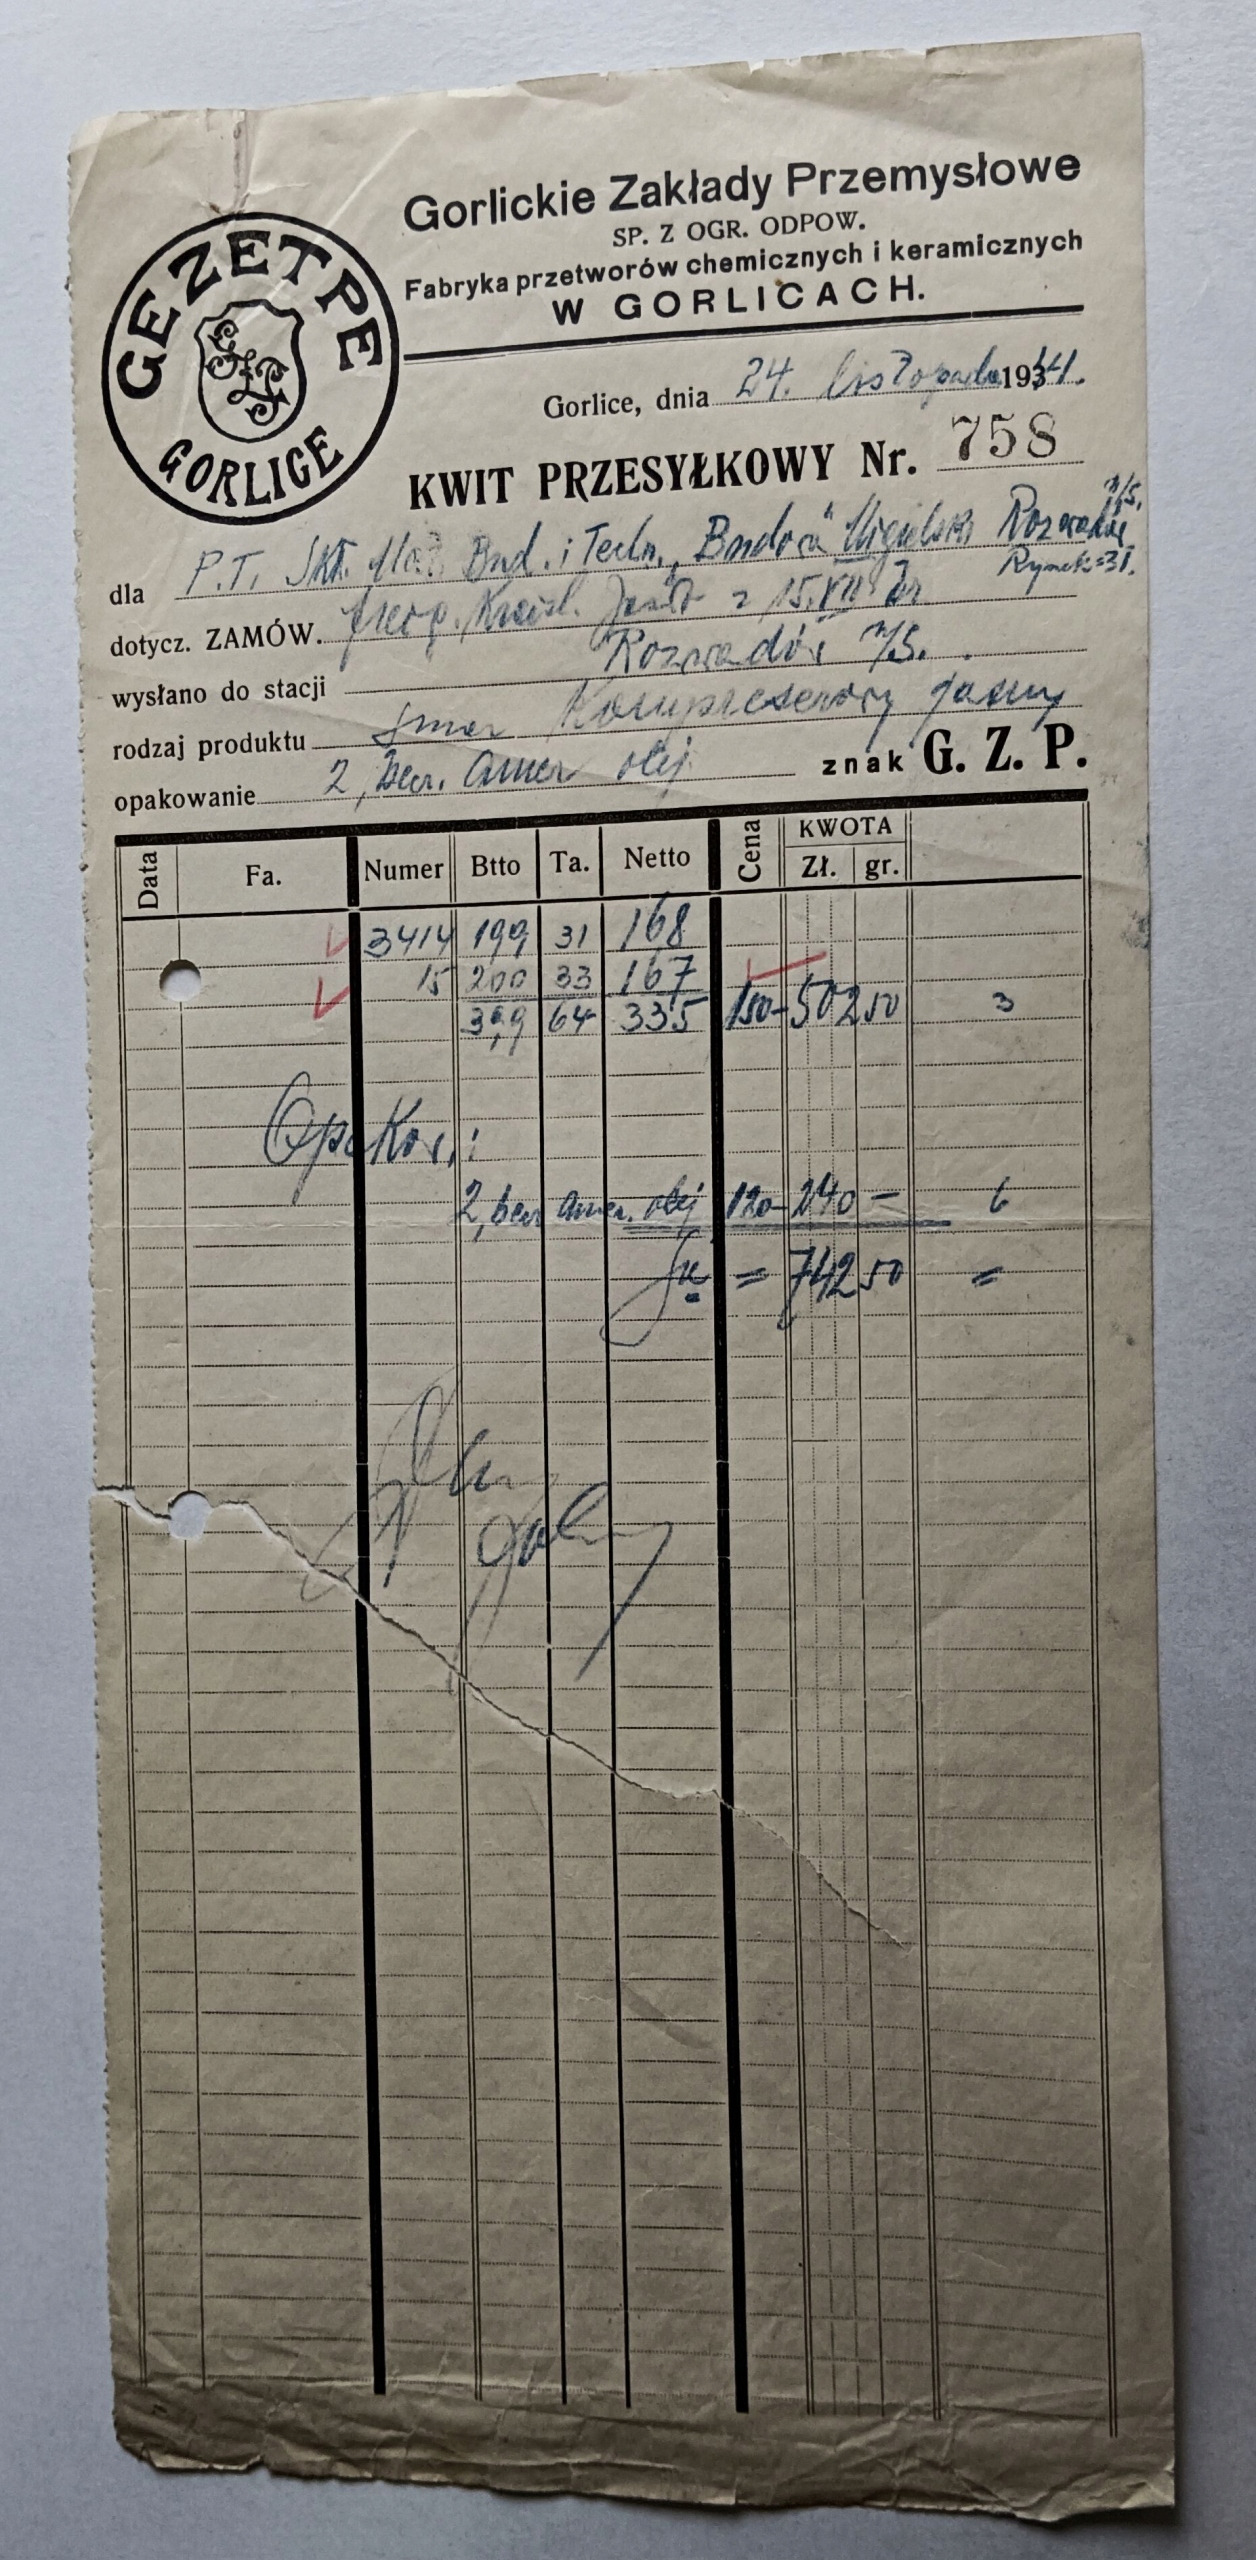 GEZETPE
GZP
GORLICE
Gorlickie Zakłady Przemysłowe
SP. Z OGR. ODPOW.
Fabryka przetworów chemicznych i keramicznych
W GORLICACH.
Gorlice, dnia 24. listopada 1941.
KWIT PRZESYŁKOWY Nr. 758
n/S.
dla P.T. Skł. Mat. Bud. i Techn. "Budowa" Rozwadów
Rynek 31.
dotycz. ZAMÓW. z 15.
wysłano do stacji Rozwadów n/S.
rodzaj produktu smar Kompresorowy jasny
opakowanie 2, becz. amer olej znak G. Z. P.
Data Fa. Numer Btto Ta. Netto Cena KWOTA
Zł. gr.
3414 199 31 168
15 200 33 167
399 64 335 150- 502 50 3
Opakow.:
2, becz amer. olej 120- 240 — 6
= 742 50 =